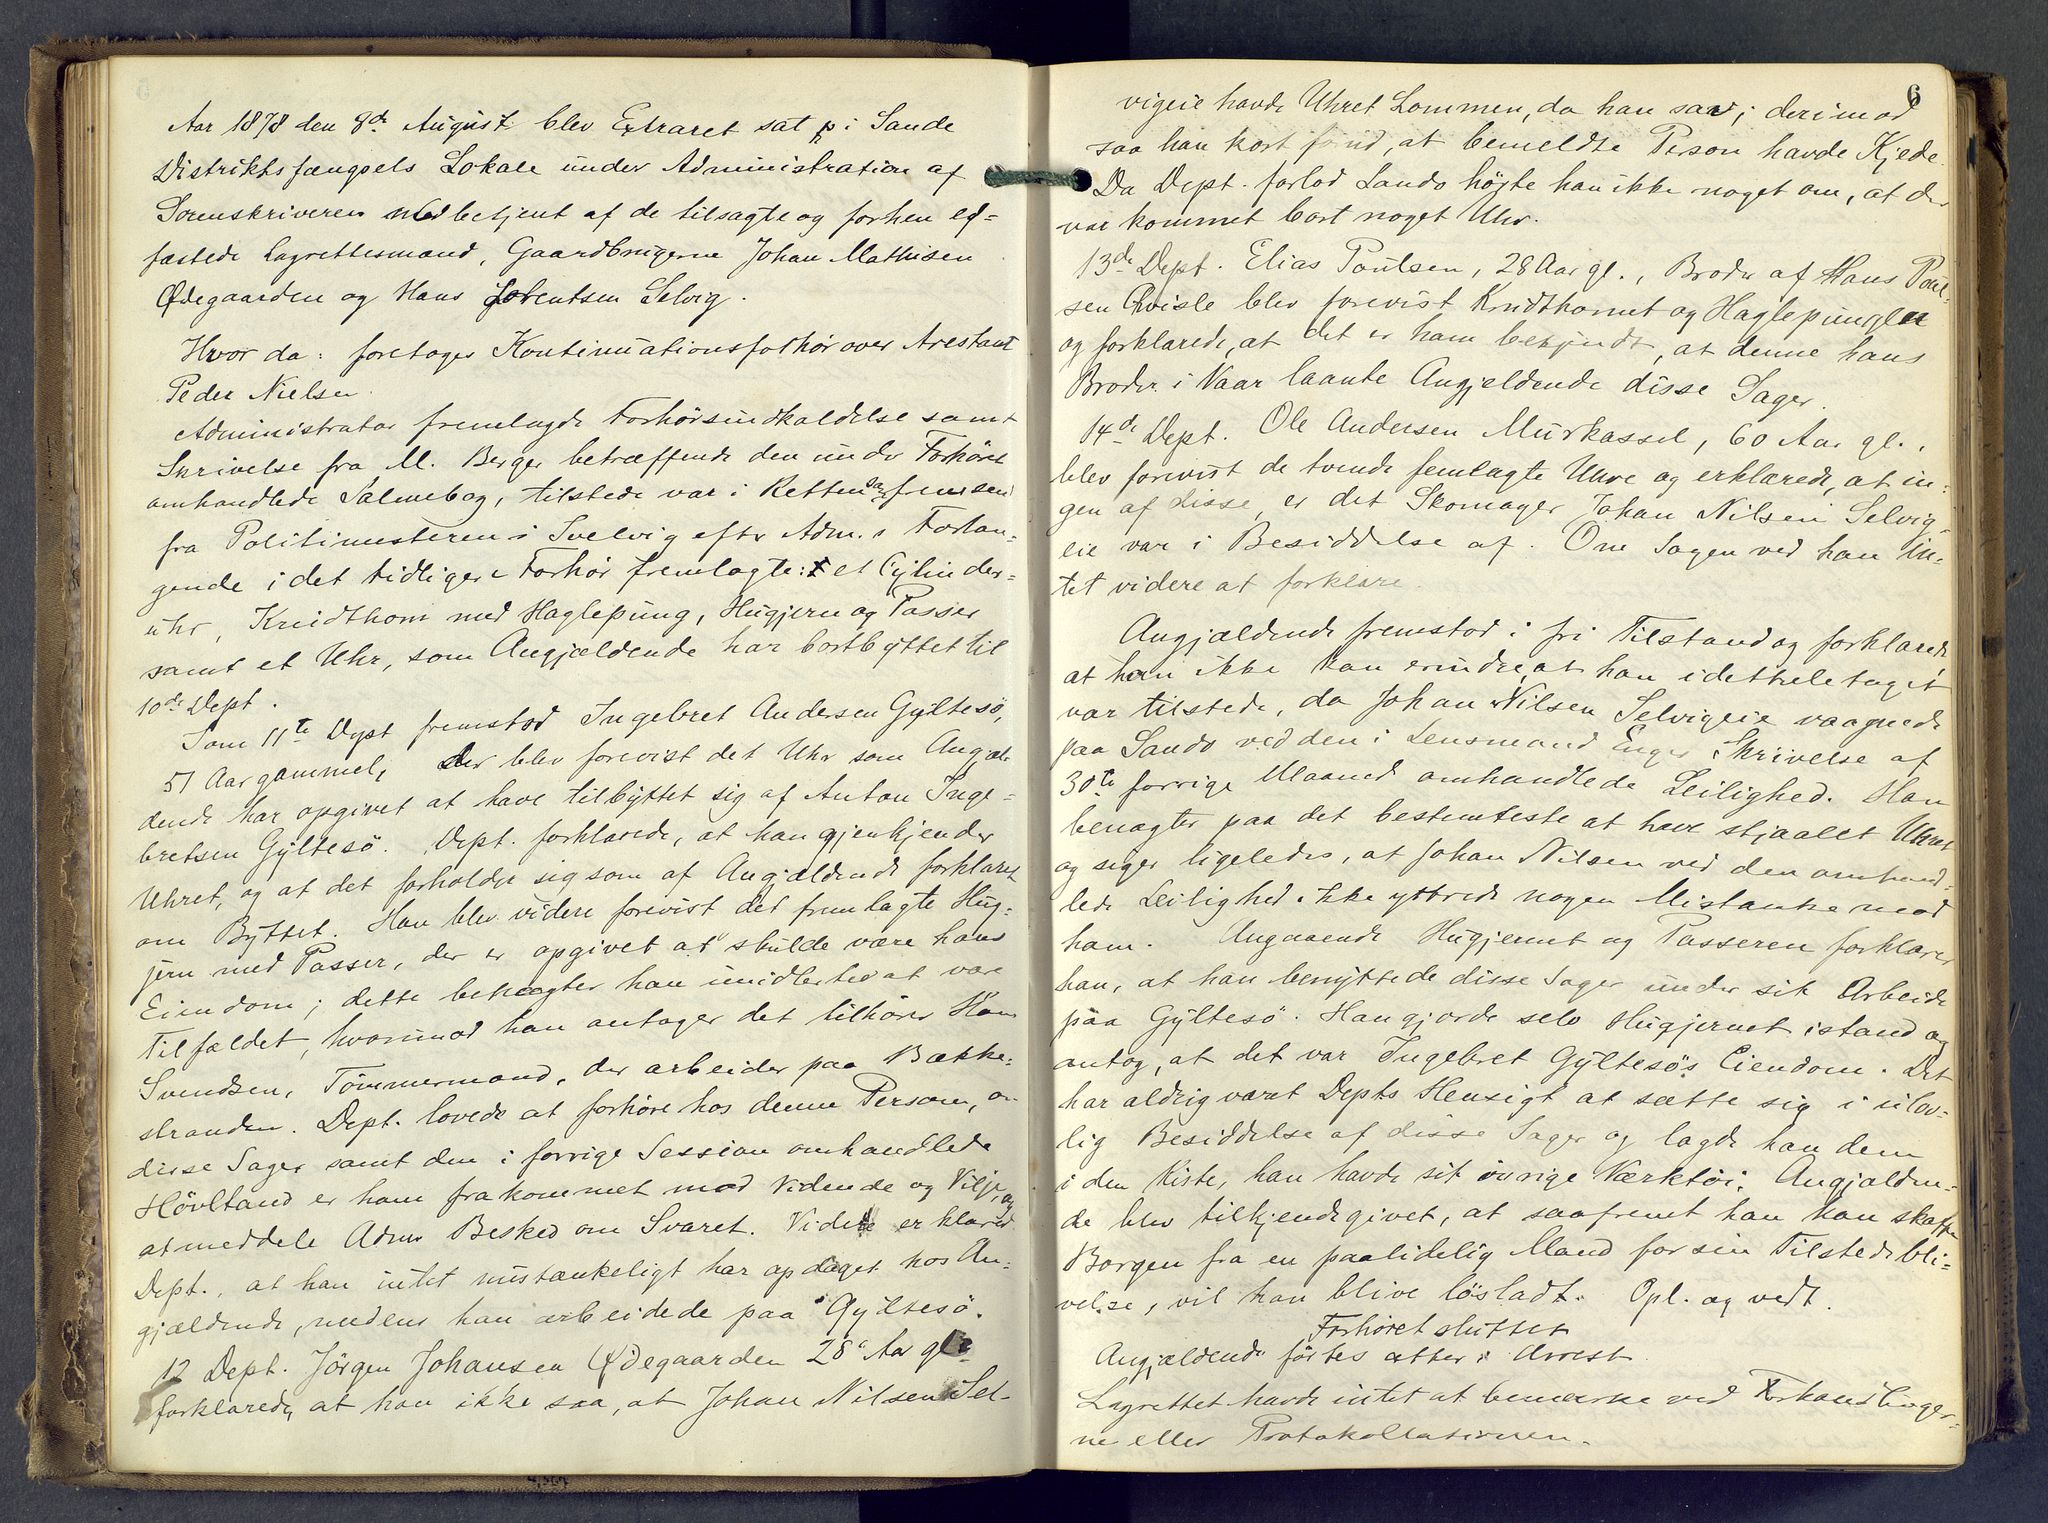 Aar 1878 den 8de August blev Extraret sat p i Sande
Distriktsfængsels Lokale under Administration af
Sorenskriveren med betjent af de tilsagte og forhen ed-
fæstede Lagrettesmænd, Gaardbrugerne Johan Mathisen
Ødegaarden og Hans Selvig.
Hvor da: foretages Kontinuationsforhør over Arestant
Peder Nielsen.
Administrator fremlagde Forhørsindkaldelse samt
Skrivelse fra M. Berger betræffende den under Forhøret
omhandlede Salmebog, tilstede var i Retten
fra Politimesteren i Svelvig efter Adm.s Forlan-
gende i det tidligere Forhør fremlagte: et Cylinder-
uhr, Krudthorn med Haglepung, Hugjern og Passer
samt et Uhr, som Angjældende har bortbyttet til
10de Dept.
Som 11te Dept fremstod Ingebret Andersen Gyltesö,
51 Aar gammel, der blev forevist det Uhr som Angjæl-
dende har opgivet at have tilbyttet sig af Anton Inge-
bretsen Gyltesö. Dept. forklarede, at han gjenkjender
Uhret, og at det forholder sig som af Angjældende forklaret
om Byttet. Han blev videre forevist det fremlagte Hug-
jern med Passer, der er opgivet at skulde være hans
Eiendom; dette benegter han imidlertid at være
Tilfældet, hvorimod han antager det tilhører Hans
Svendsen, Tömmermand, der arbeider paa Bække-
stranden. Dept. lovede at forhøre hos denne Person, om
disse Sager samt den i forrige Session omhandlede
Hövltand er ham frakommet med Vidende og Vilje, og
at meddele Adm. Besked om Svaret. Videre erklæred
Dept., at han intet mistænkeligt har opdaget hos An-
gjældende, medens han arbeidede paa Gyltesö.
12 Dept. Jörgen Johansen Ødegaarden 28 Aar gl.
forklarede, at han ikke saa, at Johan Nilsen Sel-
6
vigeie havde Uhret Lommen, da han sov; derimod
saa han kort forud, at bemeldte Person havde Kjede.
Da Dept. forlod Sando højte han ikke noget om, at der
var kommet bort noget Uhr.
13de Dept. Elias Poulsen, 28 Aar gl., Broder af Hans Poul-
sen blev forevist Krudthornet og Haglepungen
og forklarede, at det er ham bekjendt, at denne hans
Broder i Vaar laante Angjældende disse Sager.
14de Dept. Ole Andersen Murkassel, 60 Aar gl.,
blev forevist de tvende femlagte Uhre og erklærede, at in-
gen af disse er det Skomager Johan Nilsen Selvig-
eie var i Besiddelse af. Om Sagen ved han in-
tet videre at forklare.
Angjældende fremstod i fri Tilstand og forklarede,
at han ikke kan erindre, at han i det hele taget
var tilstede, da Johan Nilsen Selvigeie vaagnede
paa Sando ved den i Lensmand Enger Skrivelse af
30te forrige Maaned omhandlede Leilighed. Han
benægter paa det bestemteste at have stjaalet Uhret
og siger ligeledes, at Johan Nilsen ved den omhand-
lede Leilighed ikke yttrede nogen Mistanke mod
ham. Angaaende Hugjernet og Passeren forklarer
han, at han benyttede disse Sager under sit Arbeide
paa Gyltesö. Han gjorde selv Hugjernet istand og
antog, at det var Ingebret Gyltesös Eiendom. Det
har aldrig været Depts Hensigt at sætte sig i ulov-
lig Besiddelse af disse Sager og lagde han dem
i den Kiste, han havde sit övrige Værktöi. Angjælden-
de blev tilkjendegivet, at saafremt han kan skaffe
Borgen fra en paalidelig Mand for sin Tilstedebli-
velse, vil han blive lösladt. Opl. og vedt.
Forhöret sluttet
Angjældende förtes atter i Arrest.
Lagrettet havde intet at bemærke ved Forhandlinger-
ne eller Protokollationen.